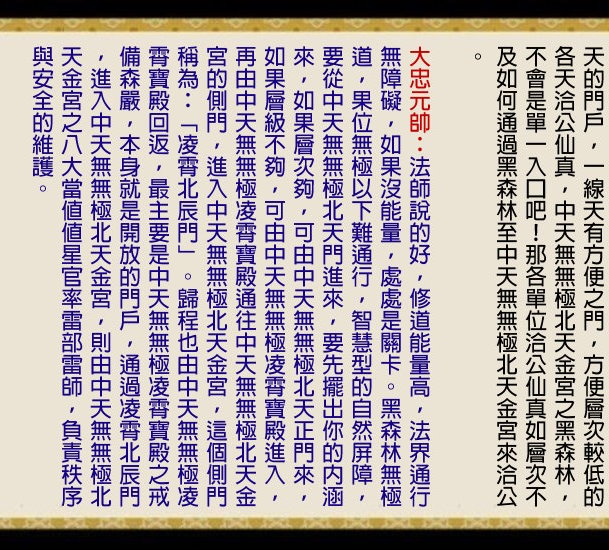 天的門戶，一線天有方便之門，方便層次較低的
各天洽公仙真，中天無無極北天金宮之黑森林，
不會是單一入口吧！那各單位洽公仙真如層次不
及如何通過黑森林至中天無無極北天金宮來洽公
。
大忠元帥：法師說的好，修道能量高，法界通行
無障礙，如果沒能量，處處是關卡。黑森林無極
道，果位無極以下難通行，智慧型的自然屏障，
要從中天無無極北天門進來，要先擺出你的內涵
來，如果層次夠，可由中天無無極北天正門來，
如果層級不夠，可由中天無無極凌霄寶殿進入，
再由中天無無極凌霄寶殿通往中天無無極北天金
宮的側門，進入中天無無極北天金宮，這個側門
稱為：「凌霄北辰門」。歸程也由中天無無極凌
霄寶殿回返，最主要是中天無無極凌霄寶殿之戒
備森嚴，本身就是開放的門戶，通過凌霄北辰門
，進入中天無無極北天金宮，則由中天無無極北
天金宮之八大當值值星官率雷部雷師，負責秩序
與安全的維護。